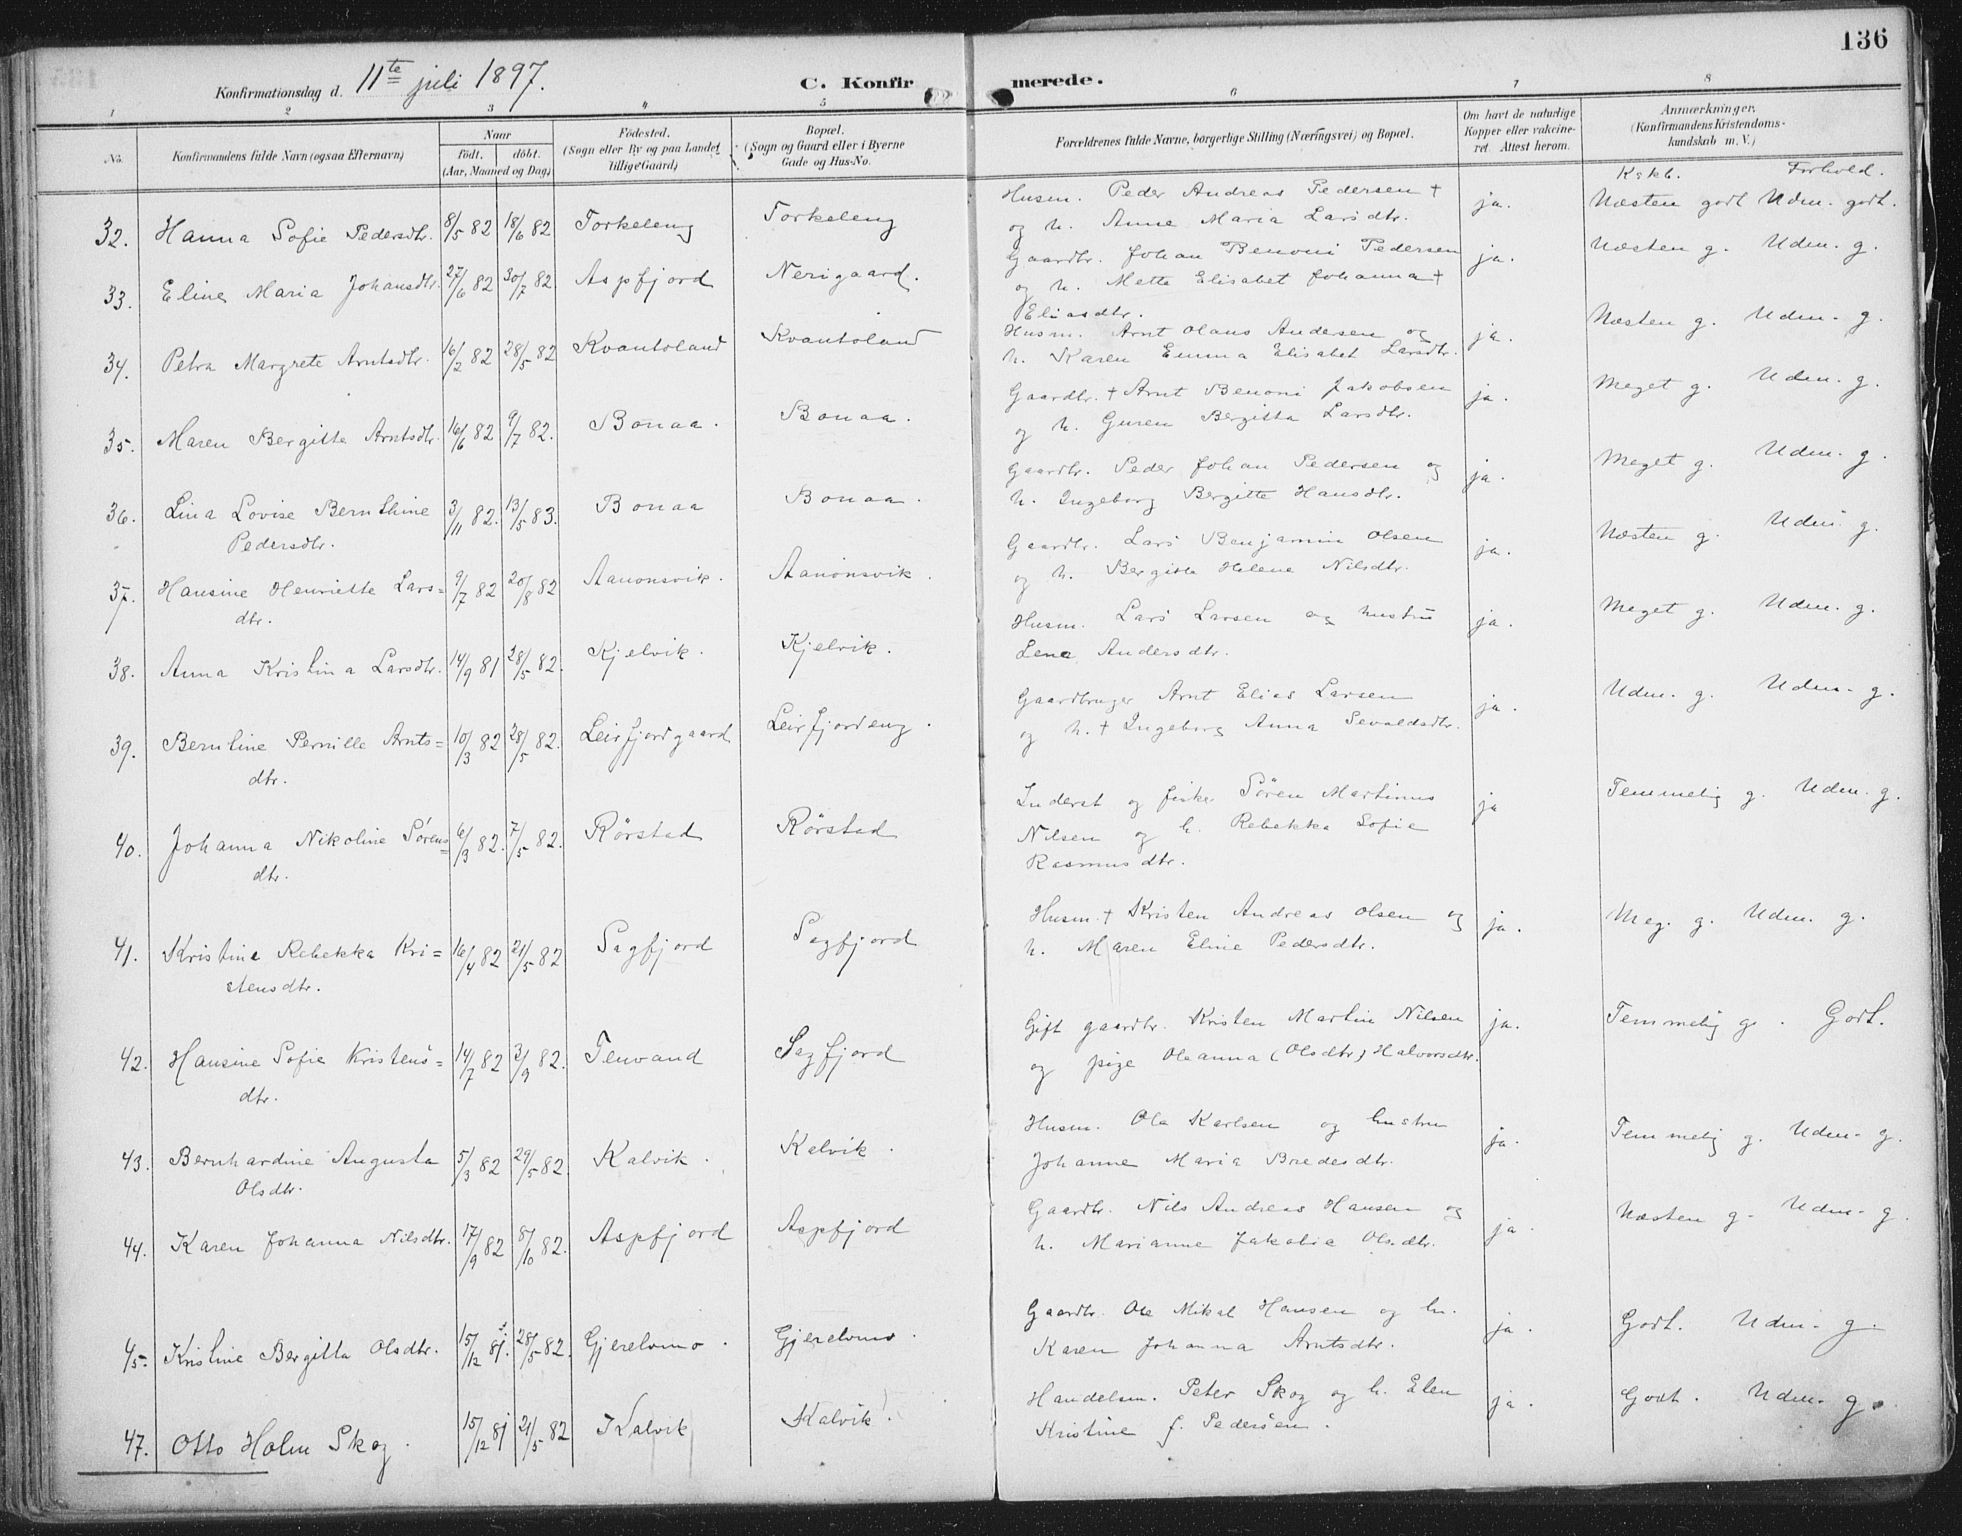 136
Konfirmationsdag d. 11te juli 1897. C. Konfirmerede.
1 2 3 4 5 6 7 8
No. Konfirmandens fulde Navn (ogsaa Efternavn) Naar födt. döbt. (Aar, Maaned og Dag) Födested. (Sogn eller By og paa Landet tillige Gaard) Bopæl. (Sogn og Gaard eller i Byerne Gade og Hus-No. Forældrenes fulde Navne, borgerlige Stilling (Næringsvei) og Bopæl. Om havt de naturlige Kopper eller vakcineret. Attest herom. Anmærkninger. (Konfirmandens Kristendomskundskab m. V.)
Kskb. Forhold.
32. Hanna Sofie Pedersdtr. 8/5 82 18/6 82 Torkeleng Torkeleng Husm. Peder Andreas Pedersen + ja. Næsten godt Udm. godt.
og h. Anne Maria Larsdtr.
33. Eline Maria Johansdtr. 27/6 82 30/7 82. Aspfjord Nerigaard. Gaardbr. Johan Benoni Pedersen ja. Næsten g. Udm. g.
og h. Mette Elisabet Johanna +
Eliasdtr.
34. Petra Margrete Arntsdtr. 16/2 82 28/5 82 Kvantoland Kvantoland Husm. Arnt Olaus Andersen og ja. Næsten g. Udm. g.
h. Karen Emma Elisabet Larsdtr.
35. Maren Bergitte Arntsdtr. 16/6 82 9/7 82. Bonaa. Bonaa. Gaardbr. + Arnt Benoni Jakobsen ja. Meget g. Udm. g.
og h. Guren Bergitta Larsdtr.
36. Lina Lovise Bernthine 3/11 82. 13/5 83. Bonaa Bonaa. Gaardbr. Peder Johan Pedersen og ja. Meget g. Udm. g.
Pedersdtr. h. Ingeborg Bergitte Hansdtr.
37. Hansine Henriette Lars= 9/7 82 20/8 82 Aanonsvik. Aanonsvik. Gaardbr. Lars Benjamin Olsen ja. Næsten g. Udm. g.
dtr. og h. Bergitta Helene Nilsdtr.
38. Anna Kristina Larsdtr. 14/9 81 28/5 82. Kjelvik. Kjelvik. Husm. Lars Larsen og hustru ja. Meget g. Udm. g.
Lena Andersdtr.
39. Berntine Pernille Arnts= 10/3 82 28/5 82. Leirfjordgaard Leirfjordeng. Gaardbruger Arnt Elias Larsen ja. Udm. g. Udm. g.
dtr. og h. + Ingeborg Anna Sevaldsdtr.
40. Johanna Nikoline Sörens= 6/3 82. 7/5 82. Rörstad Rörstad Inderst og fisker Sören Martinus ja Temmelig g. Udm. g.
dtr. Nilsen og h. Rebekka Sofie
Rasmusdtr.
41. Kristine Rebekka Kri= 16/4 82 21/5 82 Sagfjord Sagfjord Husm. + Kristen Andreas Olsen og ja. Meg. g. Udm. g.
stensdtr. h. Maren Eline Pedersdtr.
42. Hansine Sofie Kristens= 14/7 82 3/9 82. Tenvand Sagfjord Gift gaardbr. Kristen Martin Nilsen ja. Temmelig g. Godt.
dtr. og pige Oleanna (Olsdtr) Halvorsdtr.
43. Bernhardine Augusta 5/3 82 29/5 82 Kalvik. Kalvik. Husm. Ola Karlsen og hustru ja. Temmelig g. Udm. g.
Olsdtr. Johanne Maria Bredesdtr.
44. Karen Johanna Nilsdtr. 17/9 82 8/10 82. Aspfjord Aspfjord Gaardbr. Nils Andreas Hansen og ja. Næsten g. Udm. g.
h. Marianne Jakobia Olsdtr.
45. Kristine Bergitta Olsdtr. 15/12 81. 28/5 82. Gjerelvmo. Gjerelvmo. Gaardbr. Ole Mikal Hansen og h. ja. Godt. Udm. g.
Karen Johanna Arntsdtr.
47. Otto Holm Skog. 15/12 81 21/5 82 Kalvik Kalvik. Handelsm. Peter Skog og h. Elen ja. Godt. Udm. g.
Kristine f. Pedersen.